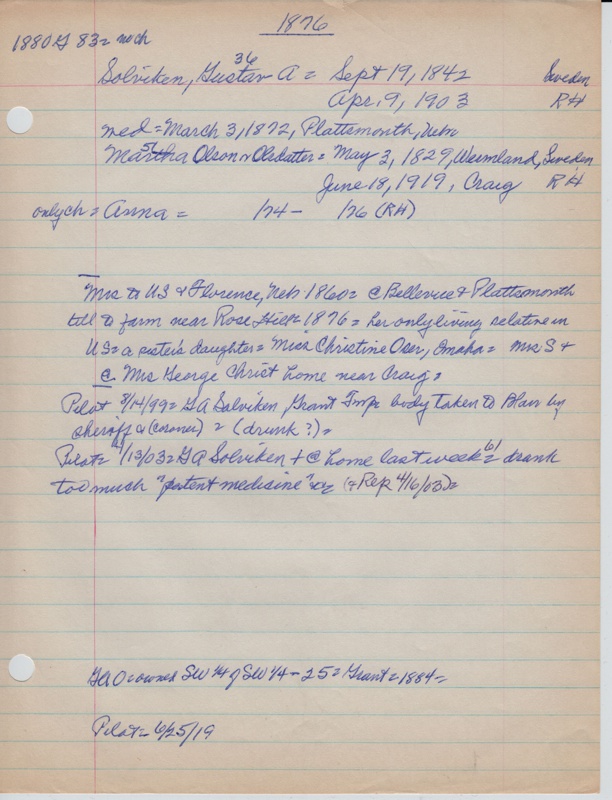 1876
1880 G 83 = no ch
36
Solviken, Gustav A = Sept 19, 1842 Sweden
Apr. 9, 1903 R H
med = March 3, 1872, Plattsmouth, Nebr
51
Martha Olson or Olsdatter = May 3, 1829, Wermland, Sweden
June 18, 1919, Craig R H
only ch = Anna = /74 - /76 (RH)
Mrs to US & Florence, Neb 1860 = @ Bellevue & Plattsmouth
till to farm near Rose Hill = 1876 = her only living relative in
US = a sister's daughter = Miss Christine Oser, Omaha = Mrs S +
@ Mrs George Christ home near Craig =
Pilot 8/14/99 = G A Solviken, Grant Twp body taken to Blair by
sheriff & (coroner) = (drunk?) =
Pilot = /13/03 = G A Solviken + @ home last week (61) = drank
too much "patent medicine" (+ Rep 4/16/03) =
GAO owned SW 1/4 of SW 1/4 - 25 = Grant = 1884 =
Pilot = 6/25/19